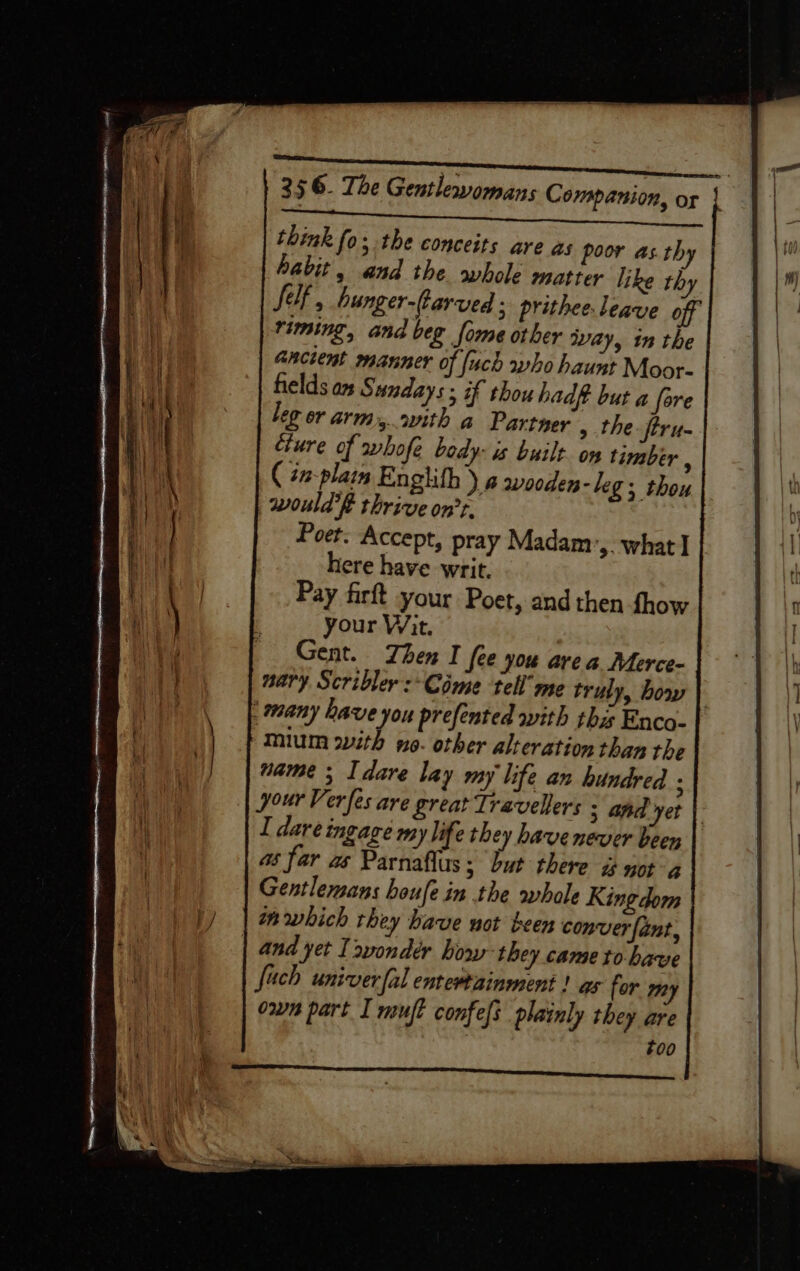 356. The Gentlewomans Companion, or
think ſo; the conceits are as poor as thy
habit, and the whole matter like thy
ſelf, hunger-ſtarved; prithee leave off
riming, and beg ſome other way, in the
ancient manner of ſuch who haunt Moor-
fields on Sundays; if thou hadſt but a ſore
leg or arm, with a Partner, the ſtru-
cture of whoſe body is built on timber,
(in plain Engliſh) a wooden-leg; thou
would'ſt thrive on't.
Poet. Accept, pray Madam, what I
here have writ.
Pay firſt your Poet, and then ſhow
your Wit.
Gent. Then I ſee you are a Merce-
nary Scribler: Come tell me truly, how
many have you preſented with this Enco-
mium with no other alteration than the
name; I dare lay my life an hundred:
your Verſes are great Travellers; and yet
I dare ingage my life they have never been
as far as Parnaſſus; but there is not a
Gentlemans houſe in the whole Kingdom
in which they have not been converſant,
and yet I wonder how they came to have
ſuch univerſal entertainment! as for my
own part I muſt confeſs plainly they are
too